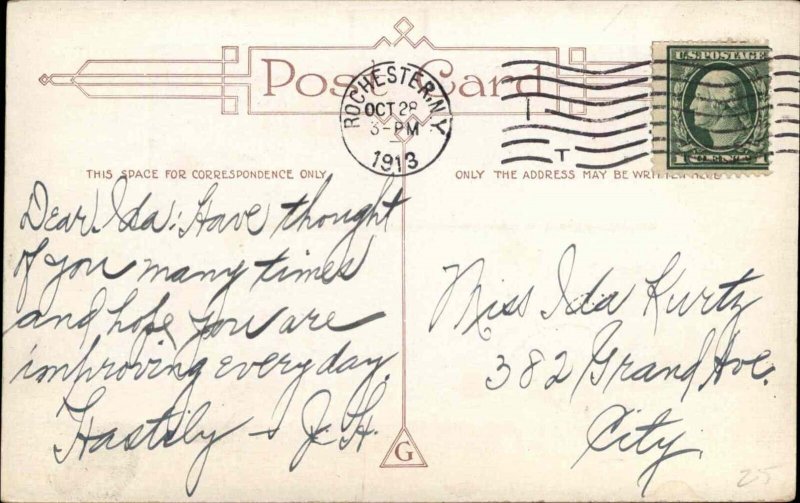 Post Card
ROCHESTER, N.Y.
OCT 28
3-PM
1913
U.S. POSTAGE
1 CENT
THIS SPACE FOR CORRESPONDENCE ONLY
ONLY THE ADDRESS MAY BE WRITTEN HERE
Dear Ida: Have thought
of you many times
and hope you are
improving every day.
Hastily - J.H.
Miss Ida Kurtz
382 Grand Ave.
City.
G
25